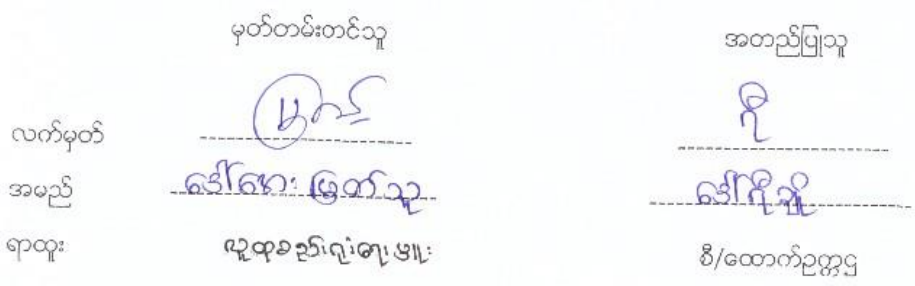 မှတ်တမ်းတင်သူ အတည်ပြုသူ
လက်မှတ်
အမည် ဒေါ်အေးမြတ်သူ ဒေါ်ရီချို
ရာထူး လူထုစည်းရုံးရေးမှူး စီ/ထောက်ဥက္ကဌ